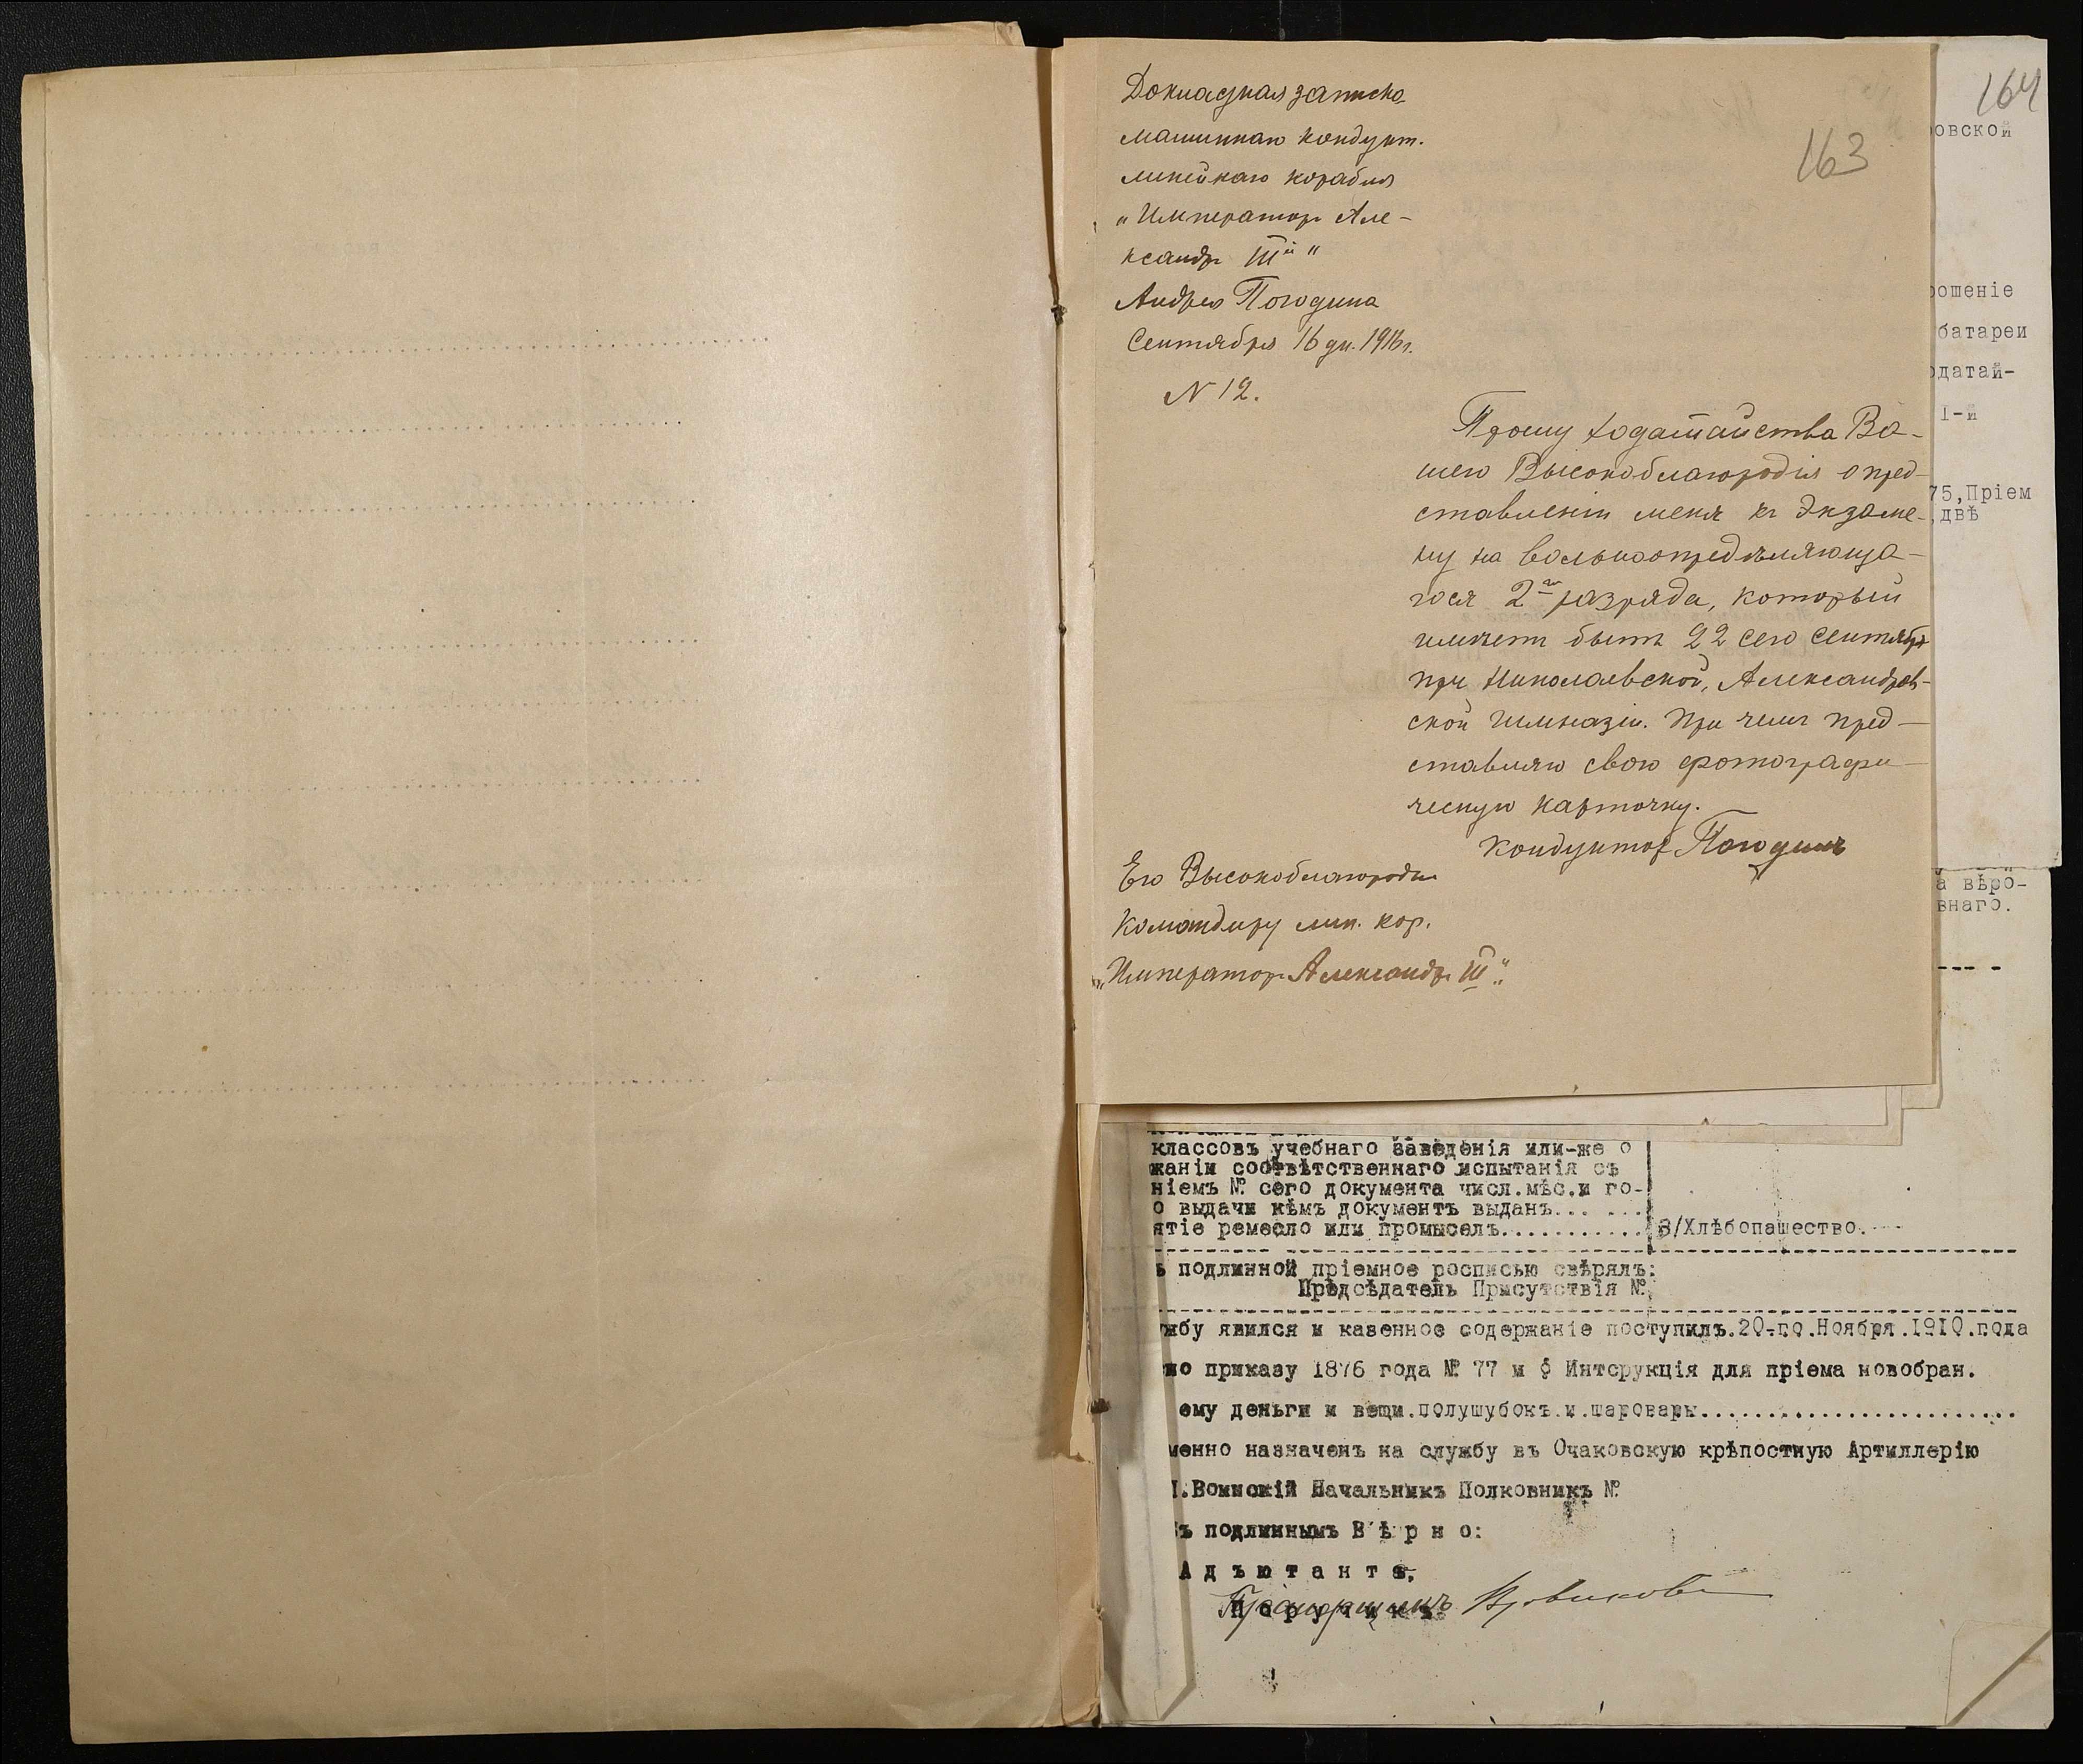 164
163
Докладная записка
машиннаго кондукт.
линейнаго корабля
„Императоръ Але-
ксандръ III й"
Андрея Погодина
Сентября 16 дн. 1916 г.
N 12.
Прошу ходатайства Ва-
шего Высокоблагородія о пред-
ставленіи меня къ экзаме-
ну на вольноопредѣляюща-
гося 2го разряда, который
имѣетъ быть 22 сего Сентября
при Николаевской, Александров-
ской Гимназіи. При чемъ пред-
ставляю свою фотографи-
ческую карточку.
Кондукторъ Погодинъ
Его Высокоблагородію
Командиру лин. кор.
„Императоръ Александръ III".
овской
ошеніе
батареи
одатай-
I-й
75,Пріем
,двѣ
а вѣро-
внаго.
классовъ учебнаго заведенія или-же о
жаніи соотвѣтственнаго испытанія съ
ніемъ № сего документа числ.мѣс.и го-
о выдачи кѣмъ документъ выданъ... ...
ятіе ремесло или промыселъ........... 3/Хлѣбопашество.
ъ подлинной пріемное росписью свѣрялъ:
Предсѣдатель Присутствія №.
жбу явился и казенное содержаніе поступилъ.20-го.Ноября.1910.года
но приказу 1876 года № 77 и § Интсрукція для пріема новобран.
ему деньги и вещи.полушубокъ.и.шаровары........................
менно назначенъ на службу въ Очаковскую крѣпостную Артиллерію
.Воинскій Начальникъ Полковникъ №
ъ подлиннымъ В ѣ р н о:
А д ъ ю т а н т ъ,
П о р у ч и к ъ Прапорщикъ